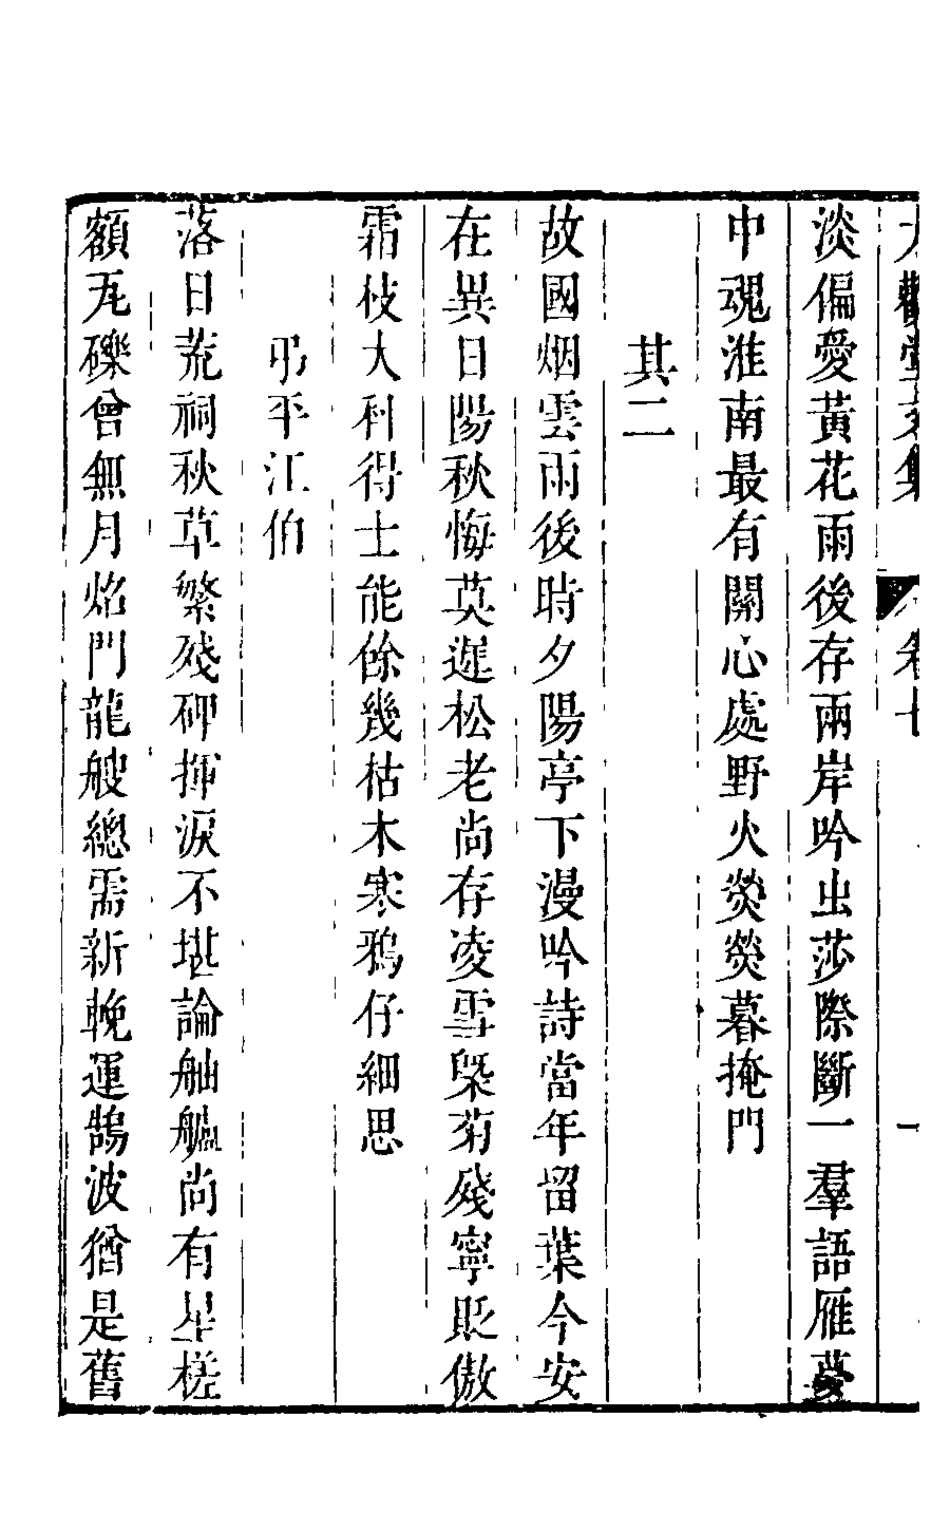 大觀堂文集 卷七 一
淡偏愛黃花雨後存兩岸吟虫莎際斷一羣語雁夢
中魂淮南最有關心處野火熒熒暮掩門
其二
故國烟雲雨後時夕陽亭下漫吟詩當年留葉今安
在異日陽秋悔莫遲松老尚存凌雪槩菊殘寧貶傲
霜枝大科得士能餘幾枯木寒鴉仔細思
弔平江伯
落日荒祠秋草繁殘碑揮淚不堪論舳艫尚有星槎
額瓦礫曾無月焰門龍艘總需新輓運鵠波猶是舊